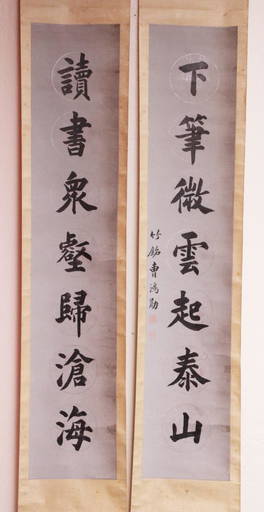 下筆微雲起泰山
讀書眾壑歸滄海
竹銘曹鴻勛